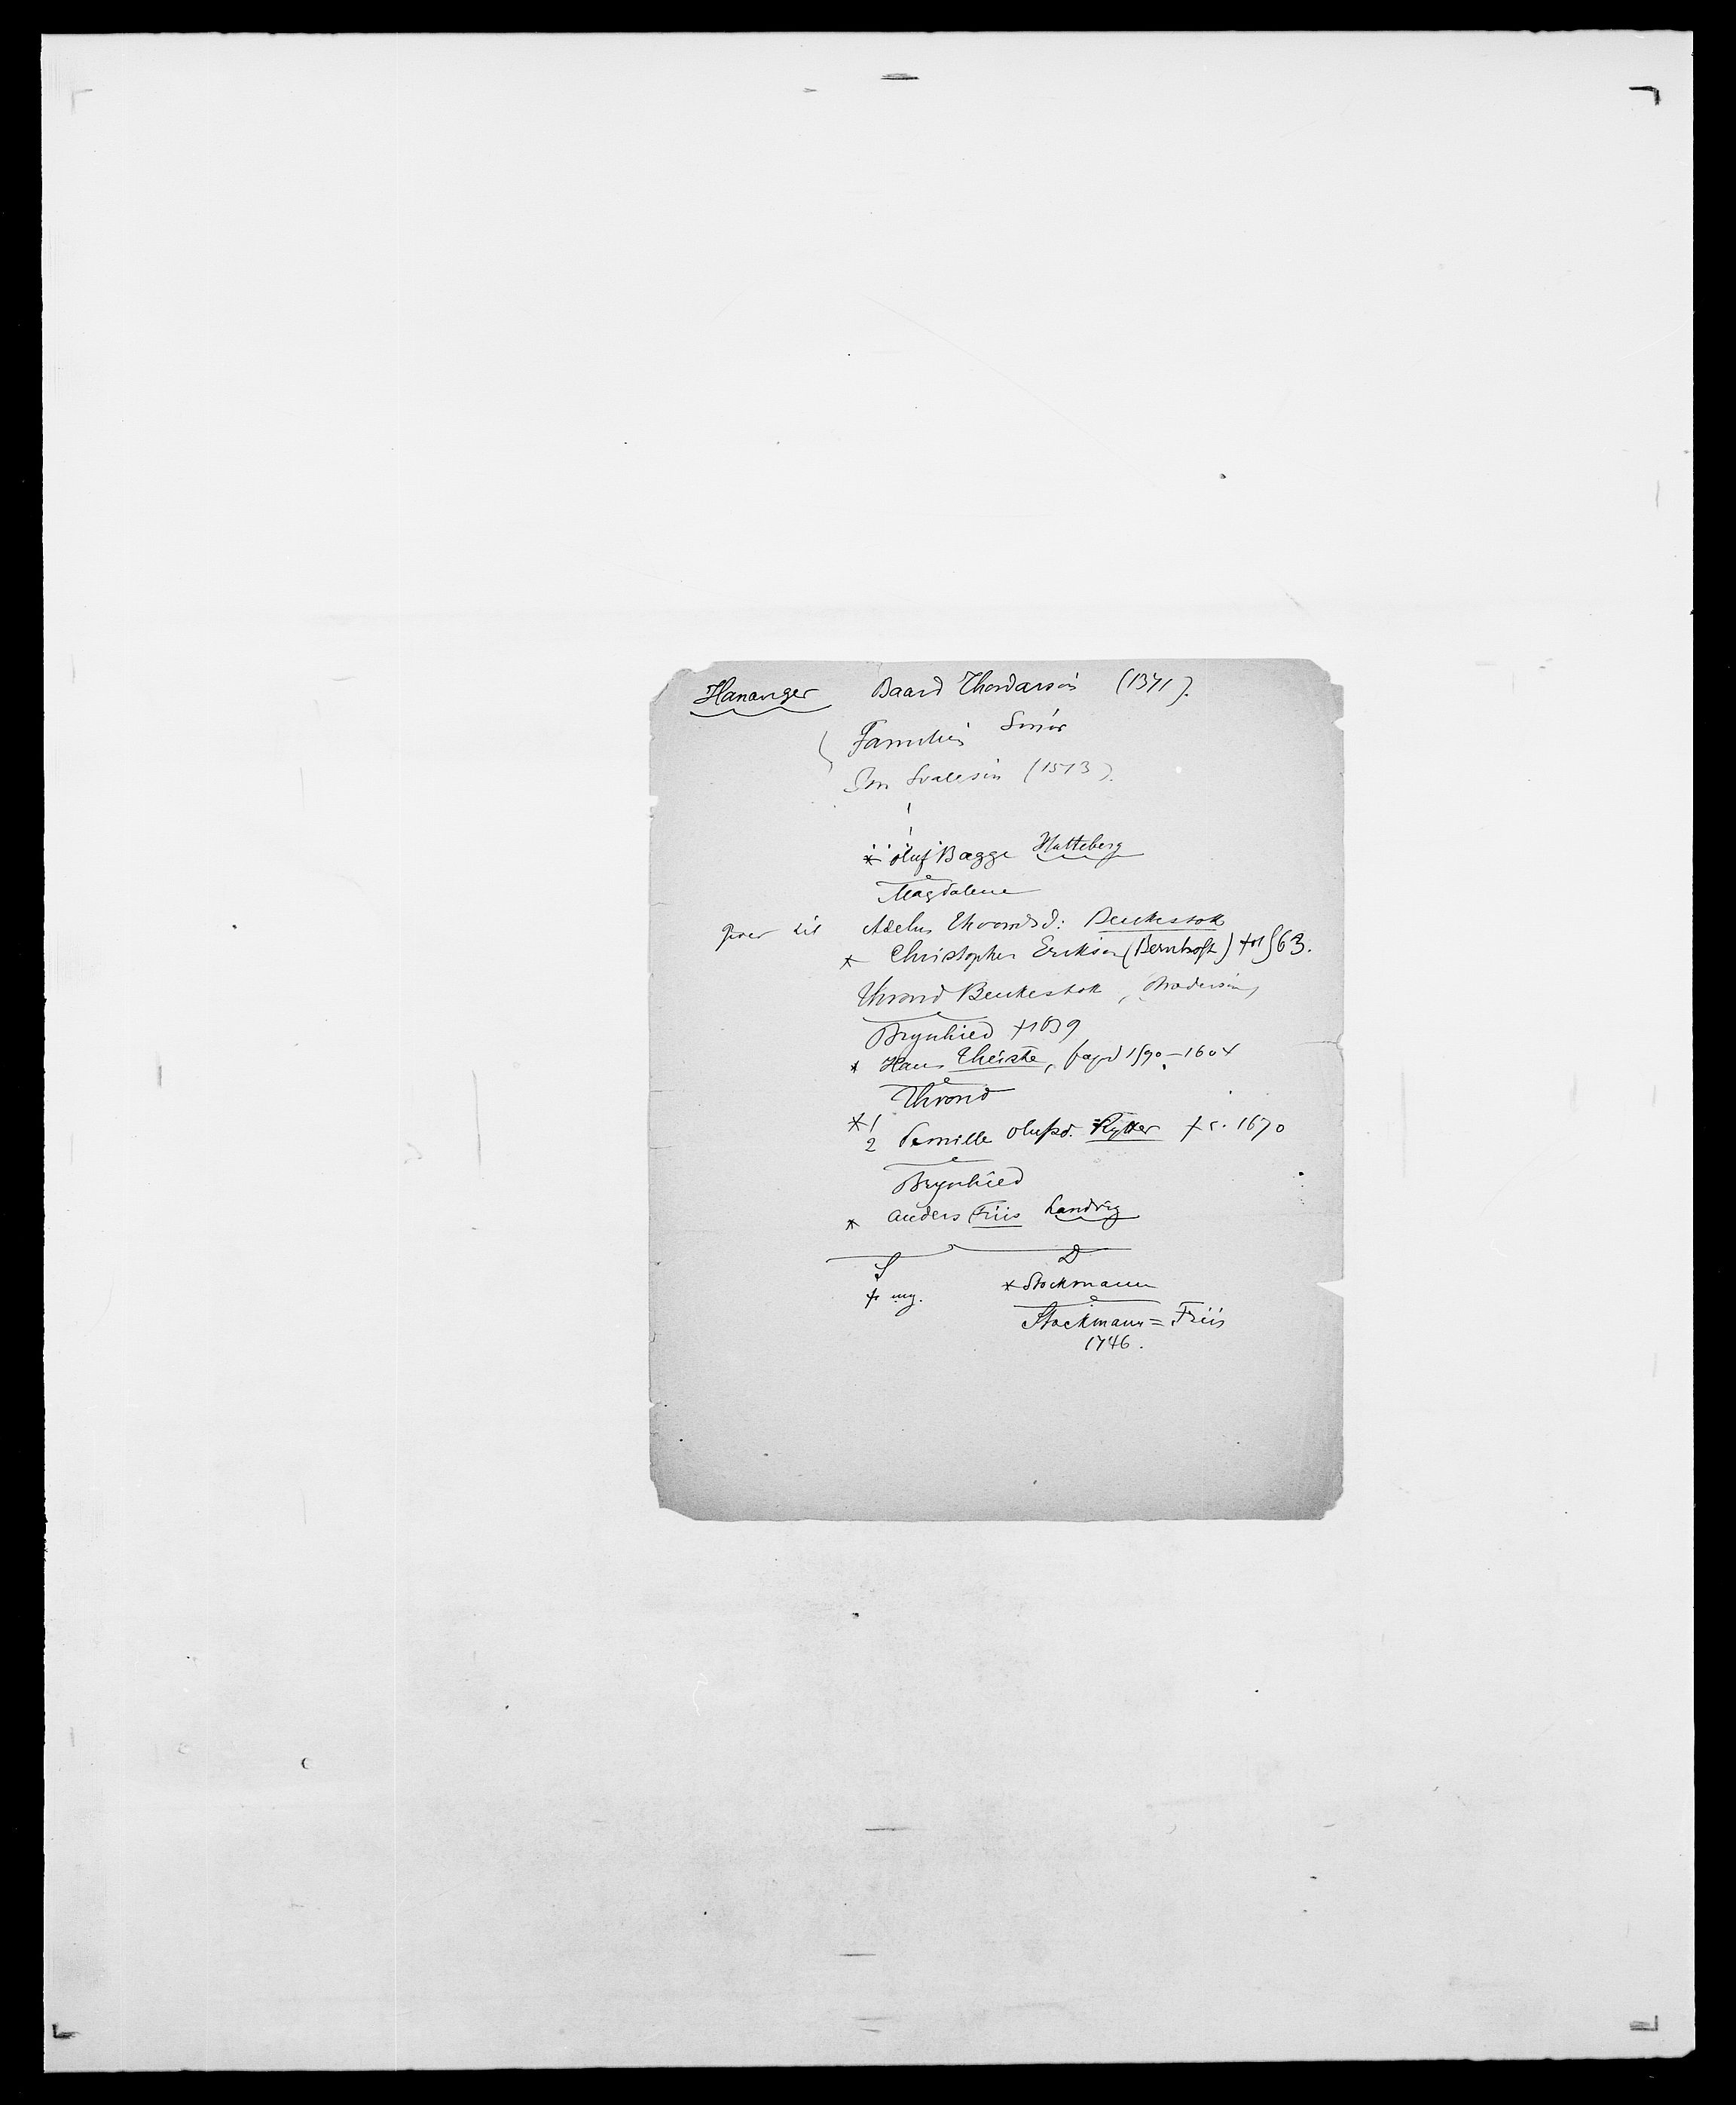 Hananger Baard Thordarsøn (1371).
Familien Smør
Jon Svalesøn (1513).
* Oluf Bagge Hatteberg
Magdalene
giver til Adelus Throndsd: Benkestok
* Christopher Eriksøn (Bernhoft) † 1563.
Thrond Benkestok, Brodersøn,
Brynhild † 1639
* Hans Theiste, foged 1590-1604
Thrond
* 1
2 Pernille Olufsd. Rytter † c. 1670
Brynhild
* Anders Friis Landvig
S D
† ug. * Stockmann
Stockmann = Friis
1746.